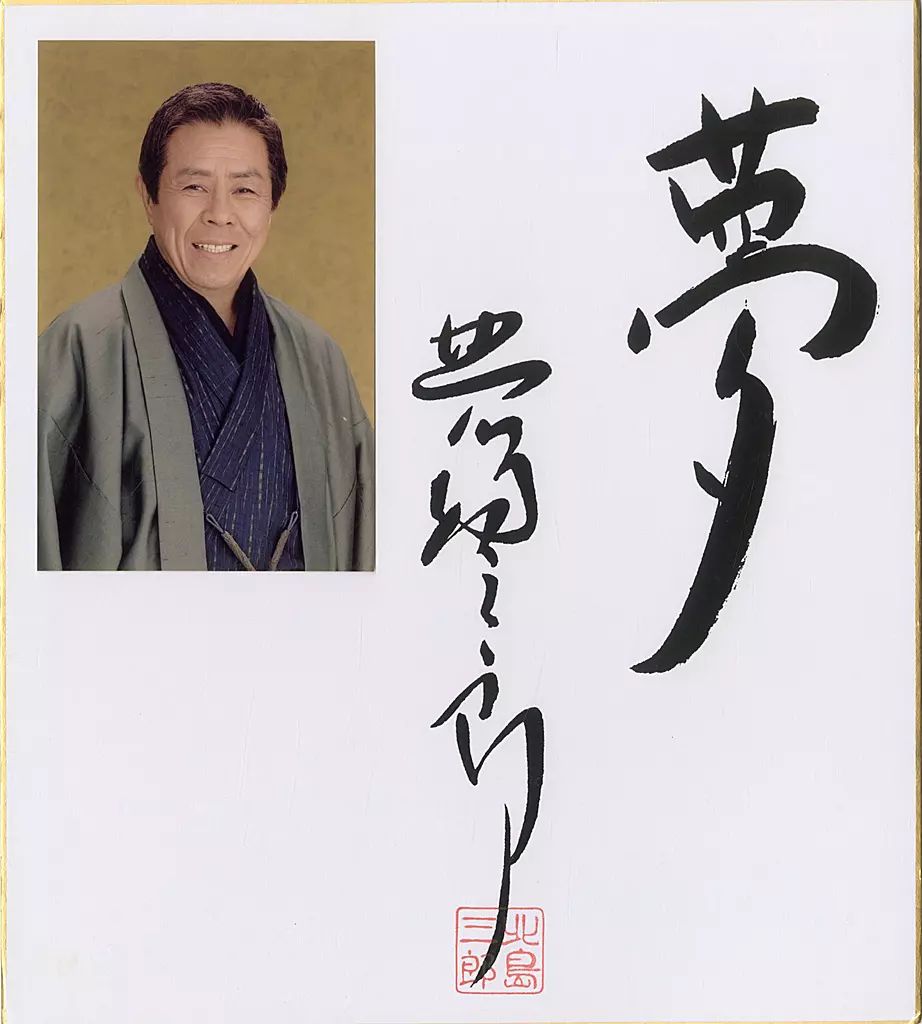 夢
北島三郎
北島
三郎